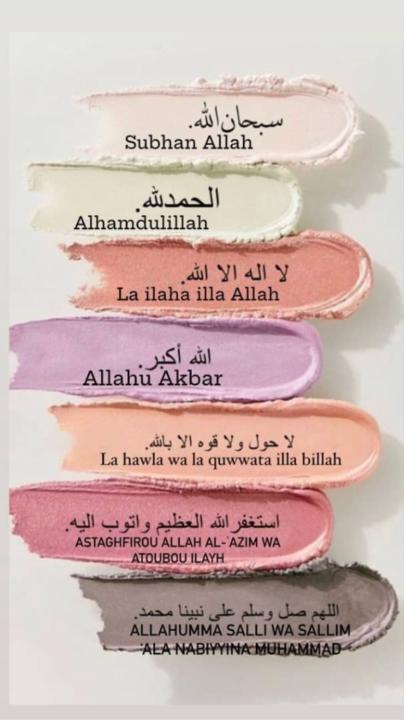 سبحان الله.
Subhan Allah
الحمدلله.
Alhamdulillah
لا اله الا الله.
La ilaha illa Allah
الله أكبر.
Allahu Akbar
لا حول ولا قوه الا بالله.
La hawla wa la quwwata illa billah
استغفر الله العظيم واتوب اليه.
ASTAGHFIROU ALLAH AL-`AZIM WA
ATOUBOU ILAYH
اللهم صل وسلم على نبينا محمد.
ALLAHUMMA SALLI WA SALLIM
'ALA NABIYYINA MUHAMMAD